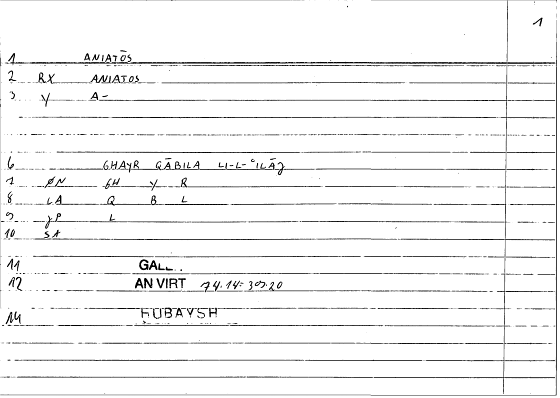 1
1 ANIATŌS
2 RX ANIATOS
3 Y A-
6 GHAYR QĀBILA LI-L-ʿILĀJ
7 ØN GH Y R
8 LA Q B L
9 JP L
10 SA
11 GAL
12 AN VIRT
14 HUBAYSH